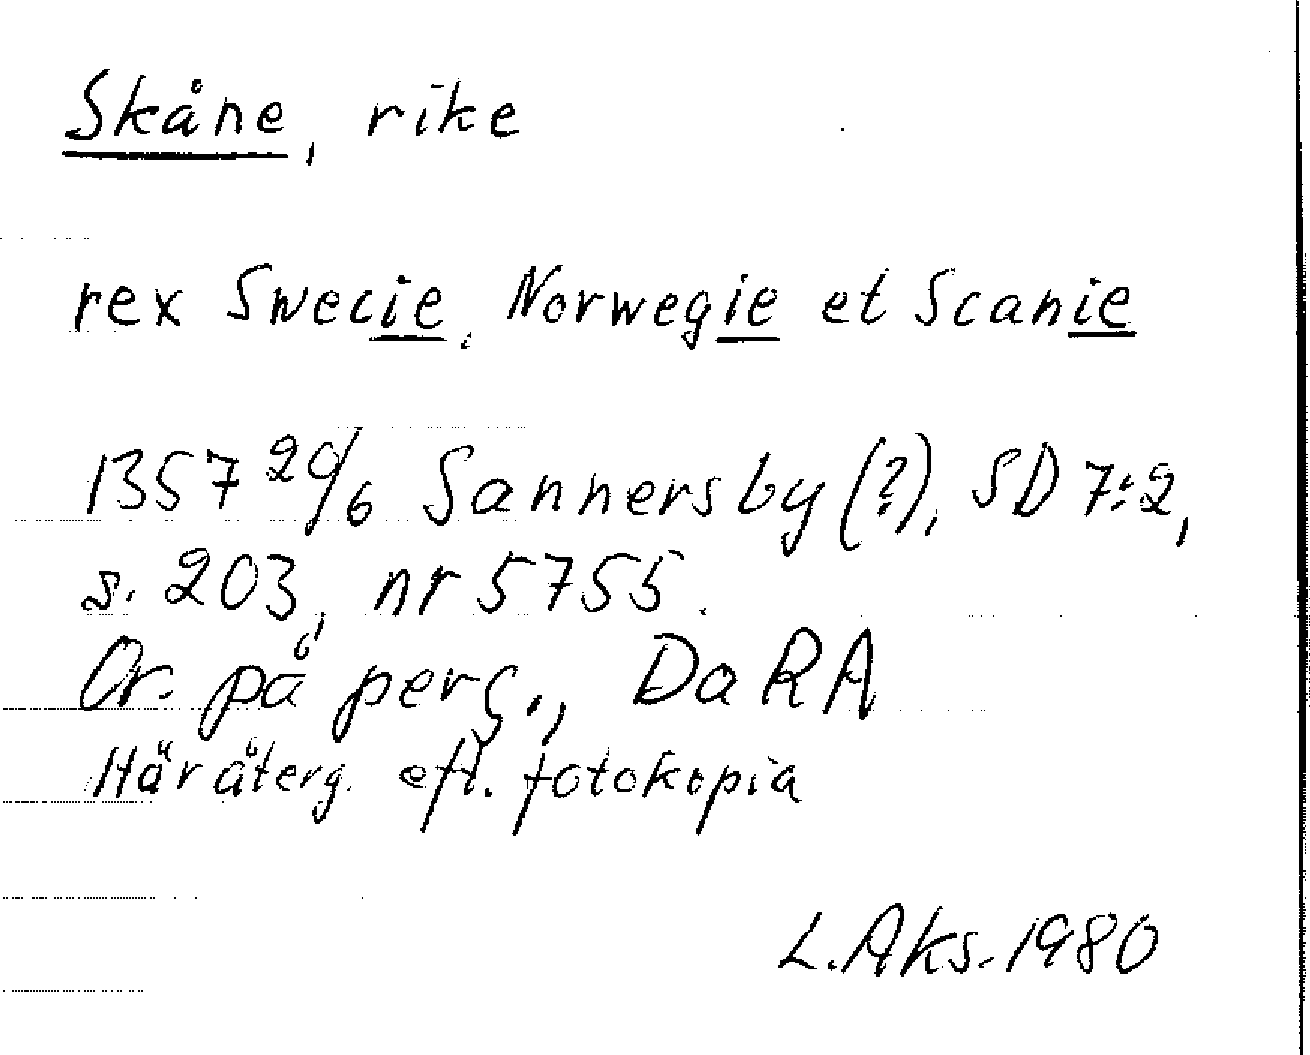 Skåne, rike
rex Swecie, Norwegie et Scanie
1357 29/6 Sannersby (?), SD 7:2,
s. 203, nr 5755.
Or. på perg., DaRA
Här återg. eft. fotokopia
L.Aks. 1980